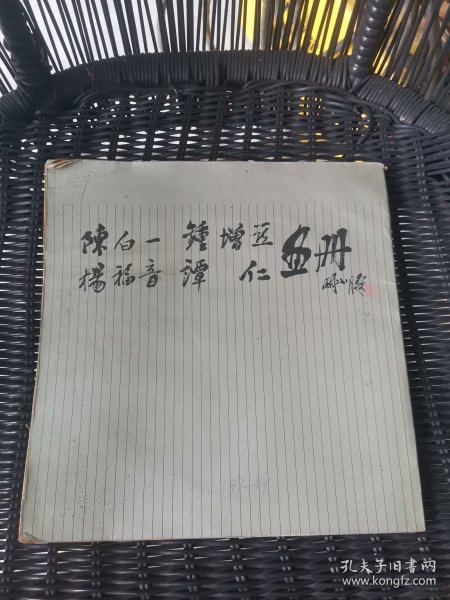 陳白一 鍾增亞 画册
楊福音 譚 仁
孔夫子旧书网
www.kongfz.com